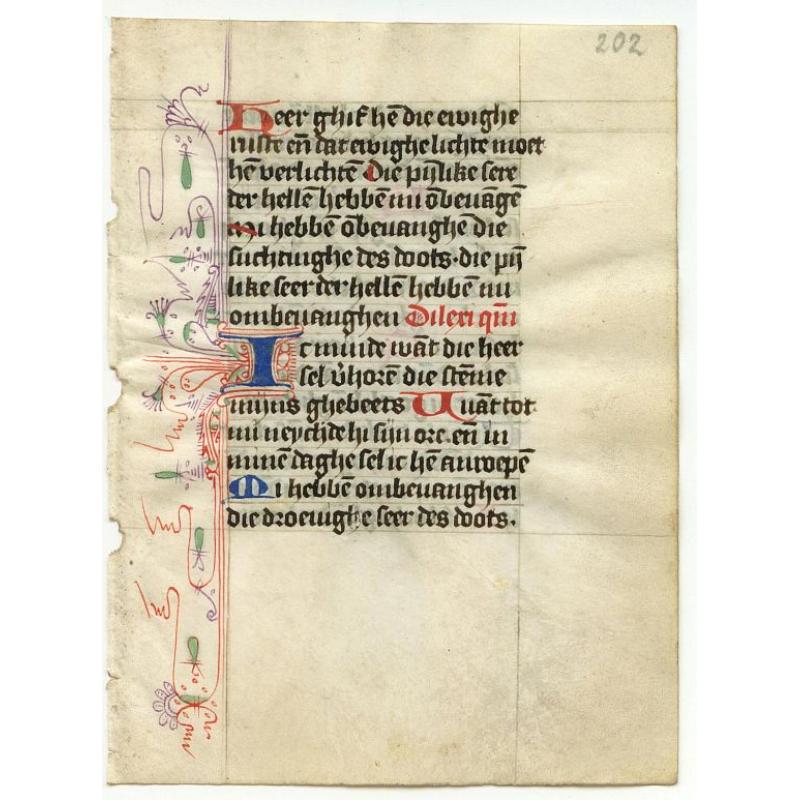 202
Heer ghif hē die ewighe
ruste eñ dat ewighe lichte moet
hē verlichtē Die pijlike sere
der hellē hebbē mi ōbeuāgē
Mi hebbē ōbeuanghē die
suchtinghe des doots. die pij
like seer der hellē hebbē mi
ombeuanghen Dilexi qm̄
Ic minde wāt die heer
sel v̄horē die stēme
mijns ghebeets Wāt tot
mi neychde hi sijn ore. eñ in
minē daghe sel ic hē anroepē
Mi hebbē ombeuanghen
die droeuighe seer des doots.